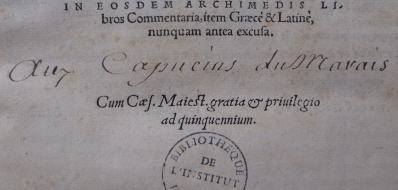 IN EOSDEM ARCHIMEDIS LI-
bros Commentaria, item Græcè & Latinè,
nunquam antea excusa.
Aux Capucins du Marais
Cum Cæs. Maiest. gratia & priuilegio
ad quinquennium.
BIBLIOTHÈQUE
DE
L'INSTITUT